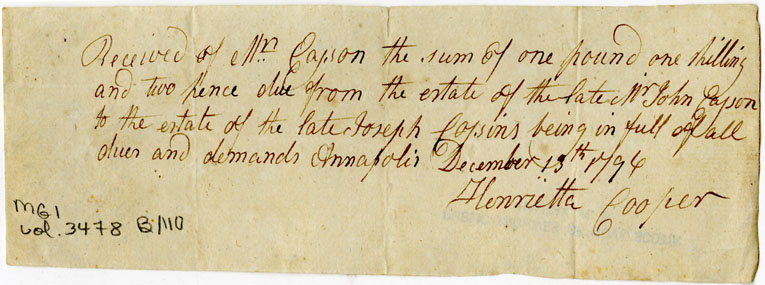 Received of Mrs. Easson the sum of one pound one shilling
and two pence due from the estate of the late Mr John Easson
to the estate of the late Joseph Cossins being in full of all
dues and demands Annapolis December 13th 1794
Henrietta Cooper
MG1
vol. 3478 B/110